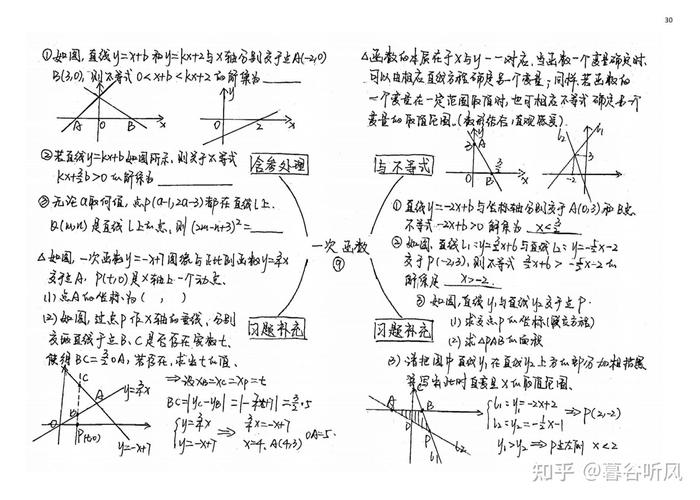 30
①如图,直线y=x+b和y=kx+2与x轴分别交于点A(-2,0)
B(3,0),则不等式0<x+b<kx+2的解集为
A
0
B
x
y
0
2
x
②若直线y=kx+b如图所示,则关于x不等式
kx+3/2b>0的解集为
③无论a取何值,点P(a-1,2a-3)都在直线l上.
Q(m,n)是直线l上的点,则(2m-n+3)²=
△如图,一次函数y=-x+7图像与正比例函数y=3/4x
交于点A,P(t,0)是x轴上一个动点.
(1)点A的坐标为( , )
(2)如图,过点P作x轴的垂线,分别
交两直线于点B、C,是否存在实数t,
使得BC=3/2OA,若存在,求出t的值.
C
A
y=3/4x
B
0
P(t,0)
y=-x+7
⇒设xB=xC=xP=t
BC=|yC-yB|=
{y=3/4x
y=-x+7
⇒ 3/4x=-x+7
x=4.A(4,3) OA=5.
含参处理
与不等式
一次函数
⑨
习题补充
习题补充
△函数的本质在于x与y一一对应,当函数一个变量确定时,
可以由相应直线方程确定另一个变量;同样,若函数的
一个变量在一定范围取值时,也可相应不等式确定另一个
变量的取值范围.(数形结合,直观感受)
3
A
3/2
B
x
l₁
3
-2
①直线y=-2x+b与坐标轴分别交于A(0,3)和B点.
不等式-2x+b>0解集为 x<3/2
②如图,直线l₁=y=3/2x+6与直线l₂=y=-5/2x-2
交于P(-2,3),则不等式3/2x+6>-5/2x-2的
解集是 x>-2
③如图,直线y₁与直线y₂交于点P.
(1)求交点P的坐标(联立方程)
(2)求△PAB的面积
(3)请把图中直线y₁在直线y₂上方的部分加粗描黑
并写出此时自变量x的取值范围.
A
B
P
l₂
l₁
{l₁=y₁=-2x+2
l₂=y₂=-1/2x-1
⇒P(2,-2)
y₁>y₂ ⇒P点左侧 x<2
知乎 @暮谷听风